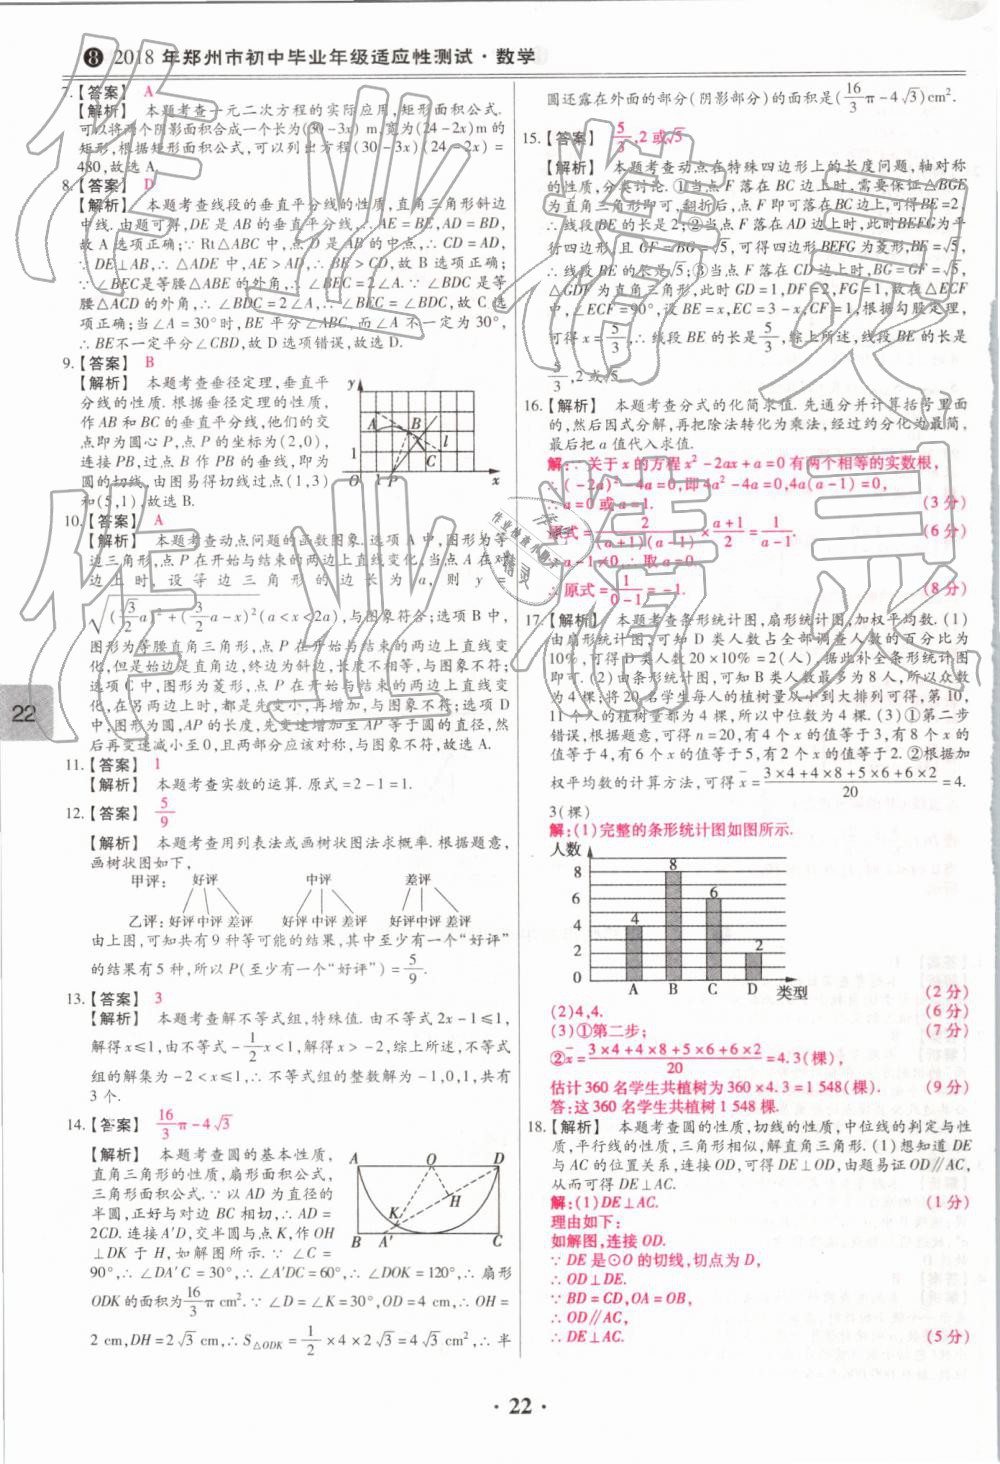 ❽ 2018 年郑州市初中毕业年级适应性测试·数学
7.【答案】 A
【解析】 本题考查一元二次方程的实际应用,矩形面积公式.
可以将两个阴影面积合成一个长为(30-3x) m,宽为(24-2x)m的
矩形,根据矩形面积公式,可以列出方程(30-3x)(24-2x)=
480,故选 A.
8.【答案】 D
【解析】 本题考查线段的垂直平分线的性质,直角三角形斜边
中线. 由题可得,DE 是 AB 的垂直平分线,∴AE=BE,AD=BD,
故 A 选项正确;∵Rt△ABC 中,点 D 是 AB 的中点,∴CD=AD,
∵DE⊥AB,∴△ADE 中,AE>AD,∴BE>CD,故 B 选项正确;
∵∠BEC是等腰△ABE的外角,∴∠BEC=2∠A.∵∠BDC 是等
腰△ACD 的外角,∴∠BDC=2∠A,∴∠BEC=∠BDC,故 C 选
项正确;当∠A=30°时,BE 平分∠ABC,而∠A 不一定为 30°,
∴BE不一定平分∠CBD,故 D 选项错误,故选 D.
9.【答案】 B
【解析】 本题考查垂径定理,垂直平
分线的性质. 根据垂径定理的性质,
作 AB 和 BC 的垂直平分线,他们的交
点即为圆心 P,点 P 的坐标为(2,0),
连接 PB,过点 B 作 PB 的垂线,即为
圆的切线,由图易得切线过点(1,3)
和(5,1),故选 B.
y
A B
1 C l
O 1 P x
10.【答案】 A
【解析】 本题考查动点问题的函数图象.选项 A 中,图形为等
边三角形,点 P 在开始与结束的两边上直线变化,当点 A 在对
边上时,设等边三角形的边长为 a,则 y=
√((√3/2 a)²+(3/2 a-x)²)(a<x<2a),与图象符合;选项 B 中,
图形为等腰直角三角形,点 P 在开始与结束的两边上直线变
化,但是始边是直角边,终边为斜边,长度不相等,与图象不符;
选项 C 中,图形为菱形,点 P 在开始与结束的两边上直线变
化,在另两边上时,都是先变小,再增加,与图象不符;选项 D
中,图形为圆,AP 的长度,先变速增加至 AP 等于圆的直径,然
后再变速减小至 0,且两部分应该对称,与图象不符,故选 A.
11.【答案】 1
【解析】 本题考查实数的运算. 原式=2-1=1.
12.【答案】 5/9
【解析】 本题考查用列表法或画树状图法求概率. 根据题意,
画树状图如下,
甲评: 好评 中评 差评
乙评:好评 中评 差评 好评 中评 差评 好评 中评 差评
由上图,可知共有 9 种等可能的结果,其中至少有一个“好评”
的结果有 5 种,所以 P(至少有一个“好评”)=5/9.
13.【答案】 3
【解析】 本题考查解不等式组,特殊值. 由不等式 2x-1≤1,
解得x≤1,由不等式-1/2x<1,解得x>-2,综上所述,不等式
组的解集为-2<x≤1,∴不等式组的整数解为-1,0,1,共有
3 个.
14.【答案】 16/3π-4√3
【解析】 本题考查圆的基本性质,
直角三角形的性质,扇形面积公式,
三角形面积公式.∵以 AD 为直径的
半圆,正好与对边 BC 相切,∴AD=
2CD. 连接 A′D,交半圆与点 K,作 OH
⊥DK 于 H,如解图所示.∵∠C=
90°,∴∠DA′C=30°,∴∠A′DC=60°,∴∠DOK=120°,∴扇形
A O D
K H
B A′ C
ODK 的面积为16/3π cm².∵∠D=∠K=30°,OD=4 cm,∴OH=
2 cm,DH=2√3 cm,∴S△ODK=1/2×4×2√3=4√3 cm²,∴半
圆还露在外面的部分(阴影部分)的面积是(16/3π-4√3)cm².
15.【答案】 5/3,2 或√5
【解析】 本题考查动点在特殊四边形上的长度问题,轴对称
的性质,分类讨论. ①当点 F 落在 BC 边上时,需要保证△BGE
为直角三角形即可,翻折后,点 F 即可落在BC 边上,可得BE=2,
∴线段 BE 的长是 2;②当点 F 落在 AD 边上时,此时BEFG为平
行四边形,且 GF=BG=√5,可得四边形 BEFG 为菱形,BE=√5,
∴线段 BE 的长是√5;③当点 F 落在 CD 边上时,BG=GF=√5,
△GDF 为直角三角形,此时 GD=1,DF=2,FG=1,故在△ECF
中,∠ECF=90°,设 BE=x,EC=3-x,CF=1,根据勾股定理,
可得 x=5/3,∴线段 BE 的长是5/3,综上所述,线段 BE 的长是
5/3,2 或√5.
16.【解析】 本题考查分式的化简求值. 先通分并计算括号里面
的,然后因式分解,再把除法转化为乘法,经过约分化为最简,
最后把 a 值代入求值.
解:∵关于 x 的方程 x²-2ax+a=0 有两个相等的实数根,
∴(-2a)²-4a=0,即 4a²-4a=0,4a(a-1)=0,
∴a=0 或 a=1. (3 分)
原式=2/((a+1)(a-1))×(a+1)/2=1/(a-1). (6 分)
∵a-1≠0,∴取 a=0.
∴原式=1/(0-1)=-1. (8 分)
17.【解析】 本题考查条形统计图,扇形统计图,加权平均数. (1)
由扇形统计图,可知 D 类人数占全部调查人数的百分比为
10%,可得 D 类人数 20×10%=2(人),据此补全条形统计图
即可. (2)由条形统计图,可知 B 类人数最多为 8 人,所以众数
为 4 棵;将 20 名学生每人的植树量从小到大排列可得,第 10,
11 个人的植树量都为 4 棵,所以中位数为 4 棵. (3)①第二步
错误,根据题意,可得 n=20,有 4 个 x 的值等于 3,有 8 个 x 的
值等于 4,有 6 个 x 的值等于 5,有 2 个 x 的值等于 2. ②根据加
权平均数的计算方法,可得x̄=(3×4+4×8+5×6+6×2)/20=4.
3(棵)
解:(1)完整的条形统计图如图所示.
人数
8 8
6 6
4 4
2 2
0 A B C D 类型
(2 分)
(2)4,4. (6 分)
(3)①第二步; (7 分)
②x̄=(3×4+4×8+5×6+6×2)/20=4.3(棵),
估计 360 名学生共植树为 360×4.3=1 548(棵). (9 分)
答:这 360 名学生共植树 1 548 棵.
18.【解析】 本题考查圆的性质,切线的性质,中位线的判定与性
质,平行线的性质,三角形相似,解直角三角形. (1)想知道 DE
与 AC 的位置关系,连接 OD,可得 DE⊥OD,由题易证OD∥AC,
从而可得 DE⊥AC.
解:(1)DE⊥AC. (1 分)
理由如下:
如解图,连接 OD.
∵DE 是⊙O 的切线,切点为 D,
∴OD⊥DE.
∵BD=CD,OA=OB,
∴OD∥AC,
∴DE⊥AC. (5 分)
22
·22·